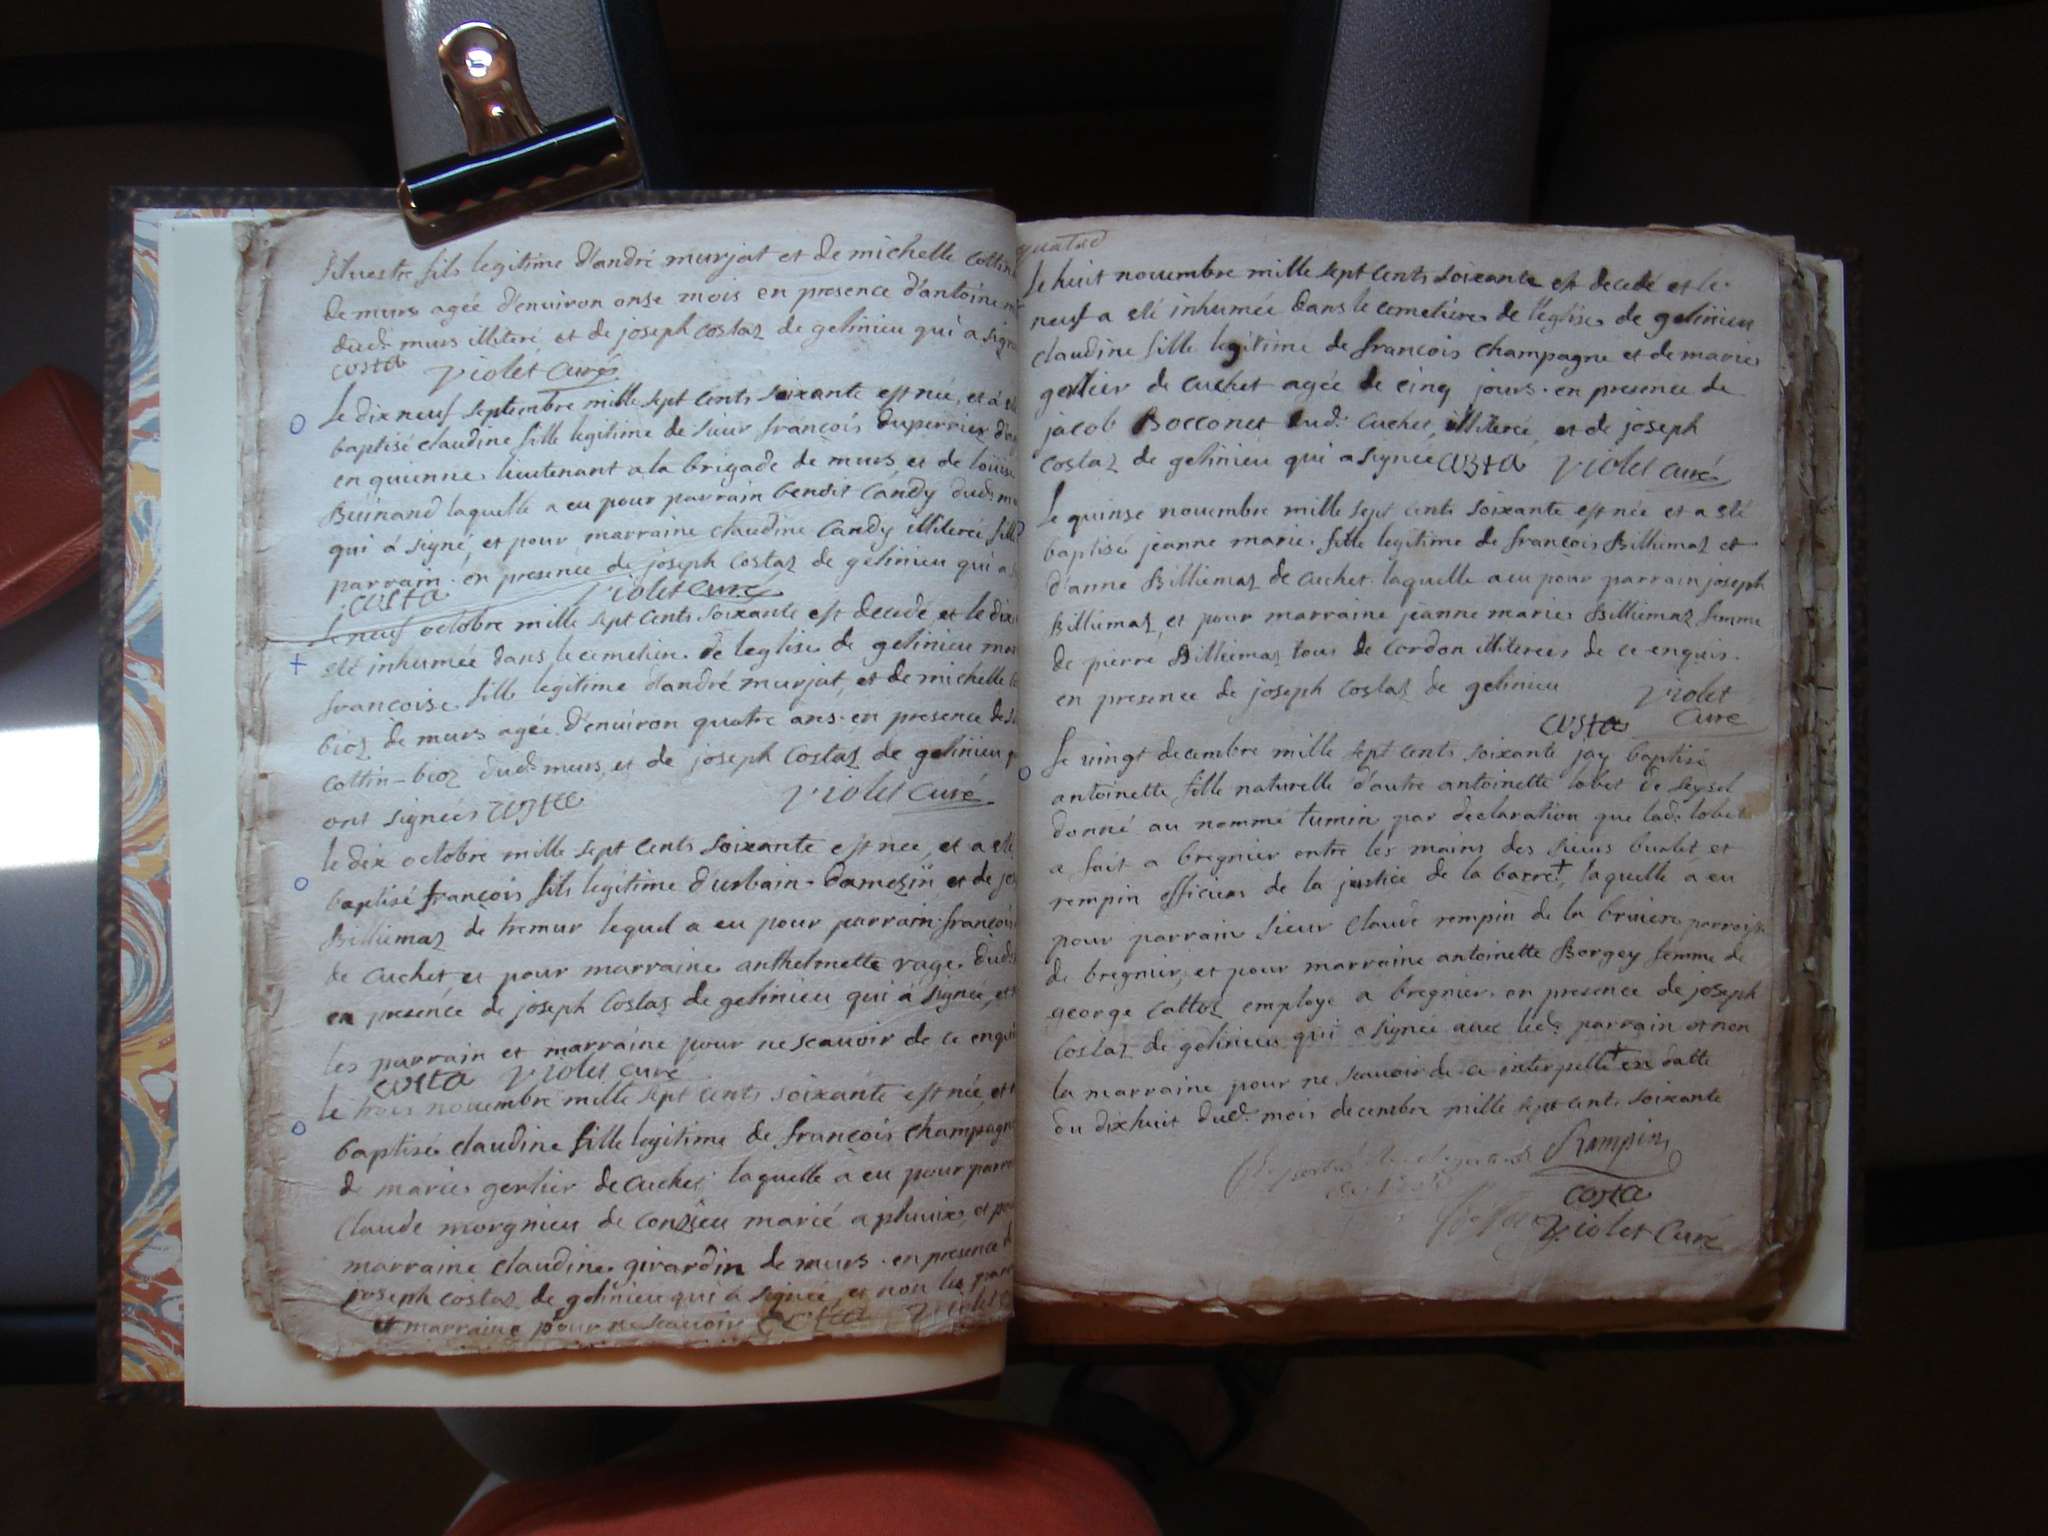 silvestre fils legitime d'andré murjat et de michelle Cottin
de murs agée d'environ onse mois en presence d'antoine
dud. murs illiteré et de joseph Costaz de gelinieu qui a signé
costa violet curé
Le dix neuf septembre mille sept cents soixante est née, et a eté
baptisé claudine fille legitime de sieur françois duperrier
en guienne lieutenant a la brigade de murs, et de loüise
Buinand laquelle a eu pour parrain benoit Candy dud.
qui á signé, et pour marraine claudine Candy illiterée fille
parrain en presence de joseph Costaz de gelinieu qui a
costa violet curé
Le neuf octobre mille sept cents soixante est decedé, et le dix
eté inhumée dans le cemetiere de leglise de gelinieu
françoise fille legitime d'andré murjat, et de michelle
bioz de murs agée d'environ quatre ans en presence de
cottin-bioz dud. murs, et de joseph Costaz de gelinieu
ont signées costa violet Curé
le dix octobre mille sept cents soixante est née, et a eté
baptisé françois fils legitime d'urbain Damezin et de
Billiemaz de tremur lequel a eu pour parrain françois
de Cuchet, et pour marraine anthelmette rage dud.
en presence de joseph Costaz de gelinieu qui á signée, et
les parrain et marraine pour ne scauoir de ce enquis
costa violet curé
le trois novembre mille sept cents soixante est née, et
baptisée claudine fille legitime de françois Champagne
de marie gertier de Cuchet laquelle á eu pour
Claude morgnieu de Conzieu marié a pluvix, et pour
marraine claudine girardin de murs en presence
joseph costaz de gelinieu qui á signée, et non les
et marraine pour ne scauoir costa violet
quatre
Le huit novembre mille sept cents soixante est decedé et le
neuf a eté inhumée dans le cemetiere de l'eglise de gelinieu
claudine fille legitime de françois Champagne et de marie
gertier de cuchet agée de cinq jours en presence de
jacob Bocconet dud. cuchet, illiterée, et de joseph
Costaz de gelinieu qui a signée costa violet curé
Le quinse novembre mille sept cents soixante est née et a eté
baptisé jeanne marie fille legitime de françois Billiemaz et
d'anne Billiemaz de Cuchet laquelle a eu pour parrain joseph
Billiemaz, et pour marraine jeanne marie Billiemaz femme
de pierre Billiemaz tous de cordon illiterées de ce enquis
en presence de joseph costaz de gelinieu violet
costa curé
Le vingt decembre mille sept cents soixante jay baptisé
antoinette fille naturelle d'autre antoinette lobet de seysel
donné au nommé tumin par declaration que lad. lobet
a fait a bregnier entre les mains des sieurs burlet et
rempin officiers de la justice de la barre+, laquelle a eu
pour parrain sieur claude rempin de la bruiere parroisse
de bregnier, et pour marraine antoinette Borgey femme de
george Cattoz employe a bregnier en presence de joseph
Costaz de gelinieu qui a signée avec led. parrain et non
la marraine pour ne scauoir de ce interpellé + en datte
du dixhuit dud. mois decembre mille sept cent soixante
Rampin
costa
violet Curé